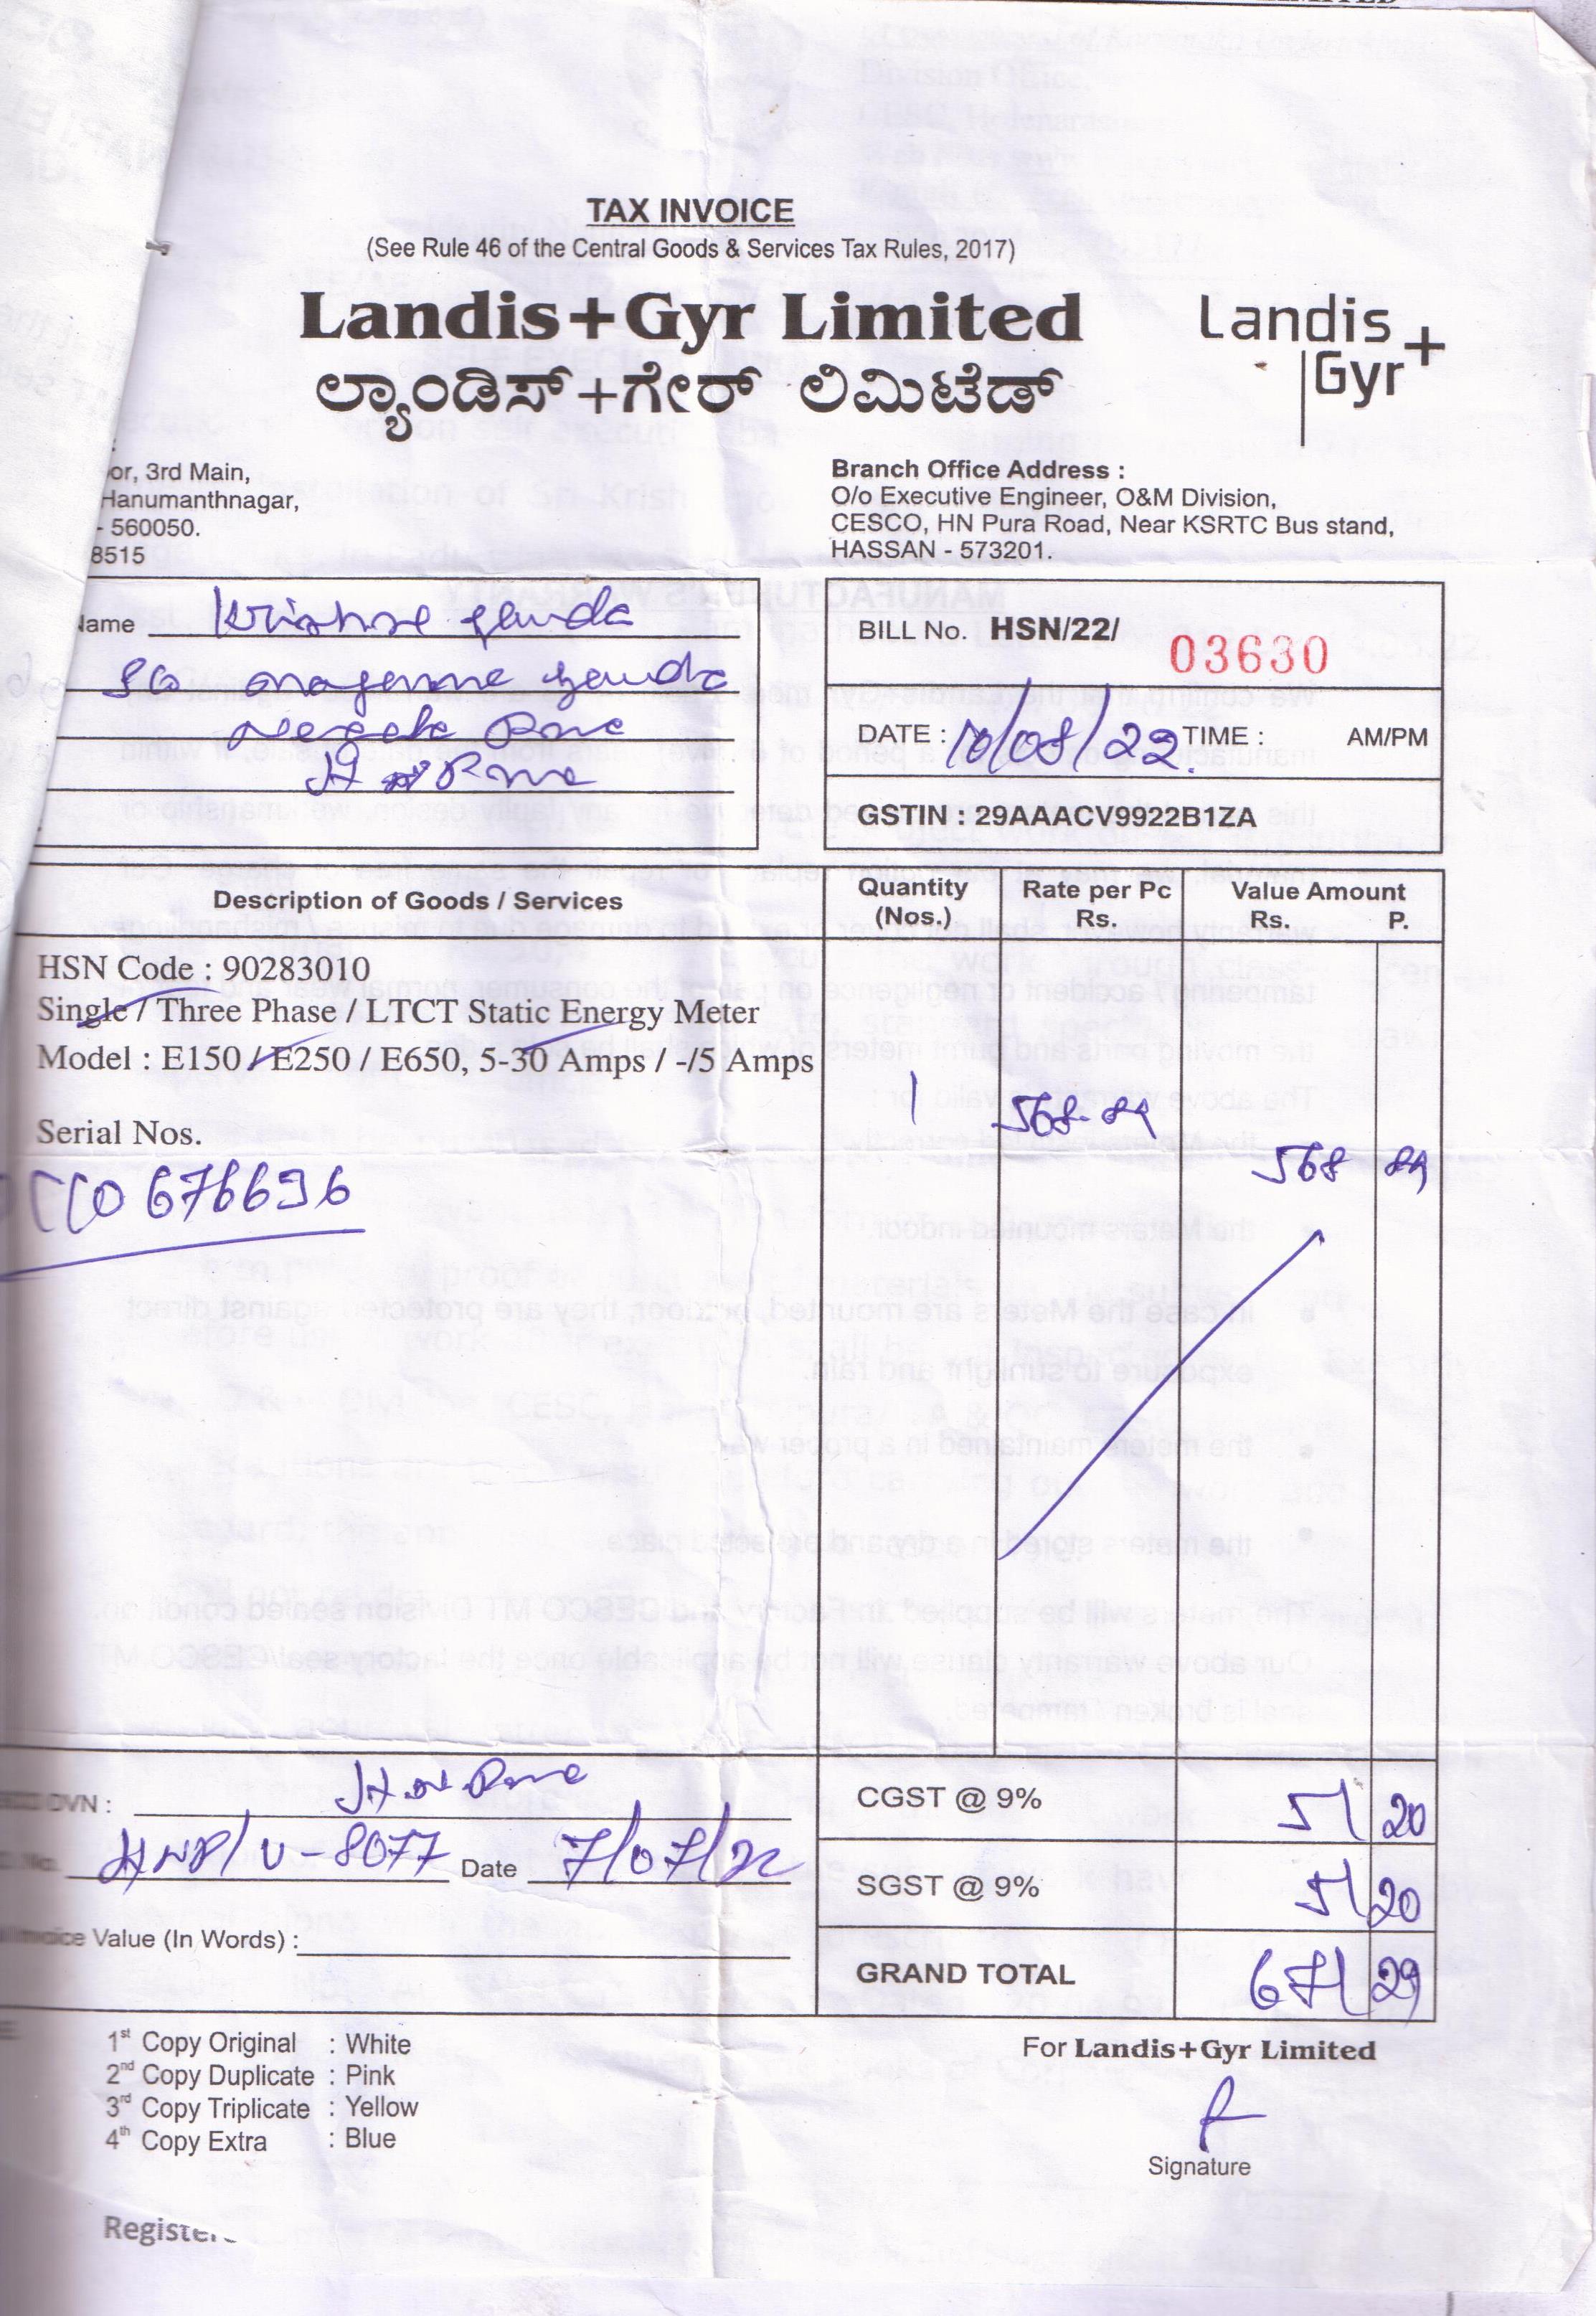 TAX INVOICE
(See Rule 46 of the Central Goods & Services Tax Rules, 2017)
Landis+Gyr Limited
Landis+
Gyr
ಲ್ಯಾಂಡಿಸ್+ಗೇರ್ ಲಿಮಿಟೆಡ್
or, 3rd Main,
Hanumanthnagar,
- 560050.
8515
Branch Office Address :
O/o Executive Engineer, O&M Division,
CESCO, HN Pura Road, Near KSRTC Bus stand,
HASSAN - 573201.
ame Krishne gowda
gowda
H N Pura
BILL No. HSN/22/ 03630
DATE : 10/08/22. TIME : AM/PM
GSTIN : 29AAACV9922B1ZA
Description of Goods / Services Quantity (Nos.) Rate per Pc Rs. Value Amount Rs. P.
HSN Code : 90283010
Single / Three Phase / LTCT Static Energy Meter
Model : E150 / E250 / E650, 5-30 Amps / -/5 Amps
1 568-89
Serial Nos.
568 89
676696
DVN : H N Pura
CGST @ 9% 51 20
No. HNP/U-8077 Date 7/07/22
SGST @ 9% 51 20
Invoice Value (In Words) :
GRAND TOTAL 671 29
1st Copy Original : White
2nd Copy Duplicate : Pink
3rd Copy Triplicate : Yellow
4th Copy Extra : Blue
For Landis+Gyr Limited
Signature
Register